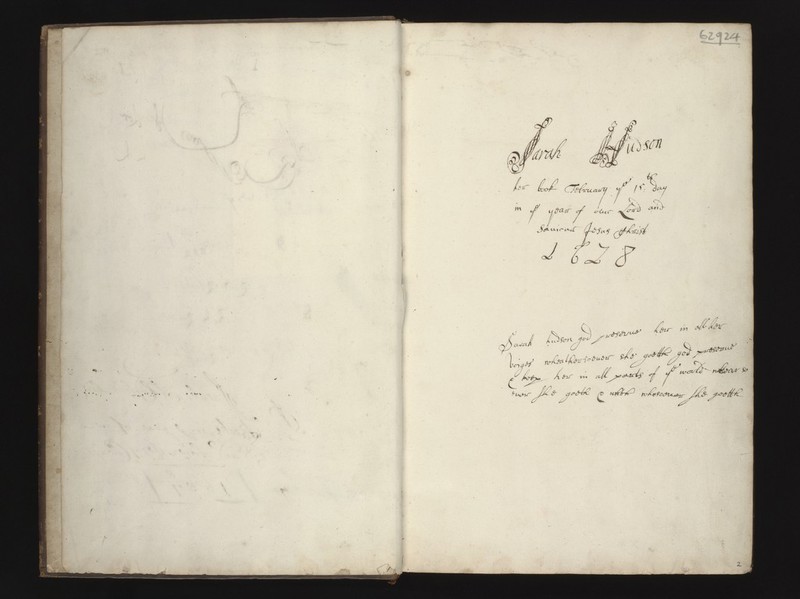 62924
Sarah Hudson
her book February yͤ 15ᵗʰ day
in yͤ year of our Lord and
Saviour Jesus Christ
1678
Sarah hudson god preserue her in all her
wheathersoeuer she goeth god preserue
& keep her in all parts of yͤ world
euer she goeth & whersoeuer she goeth
2